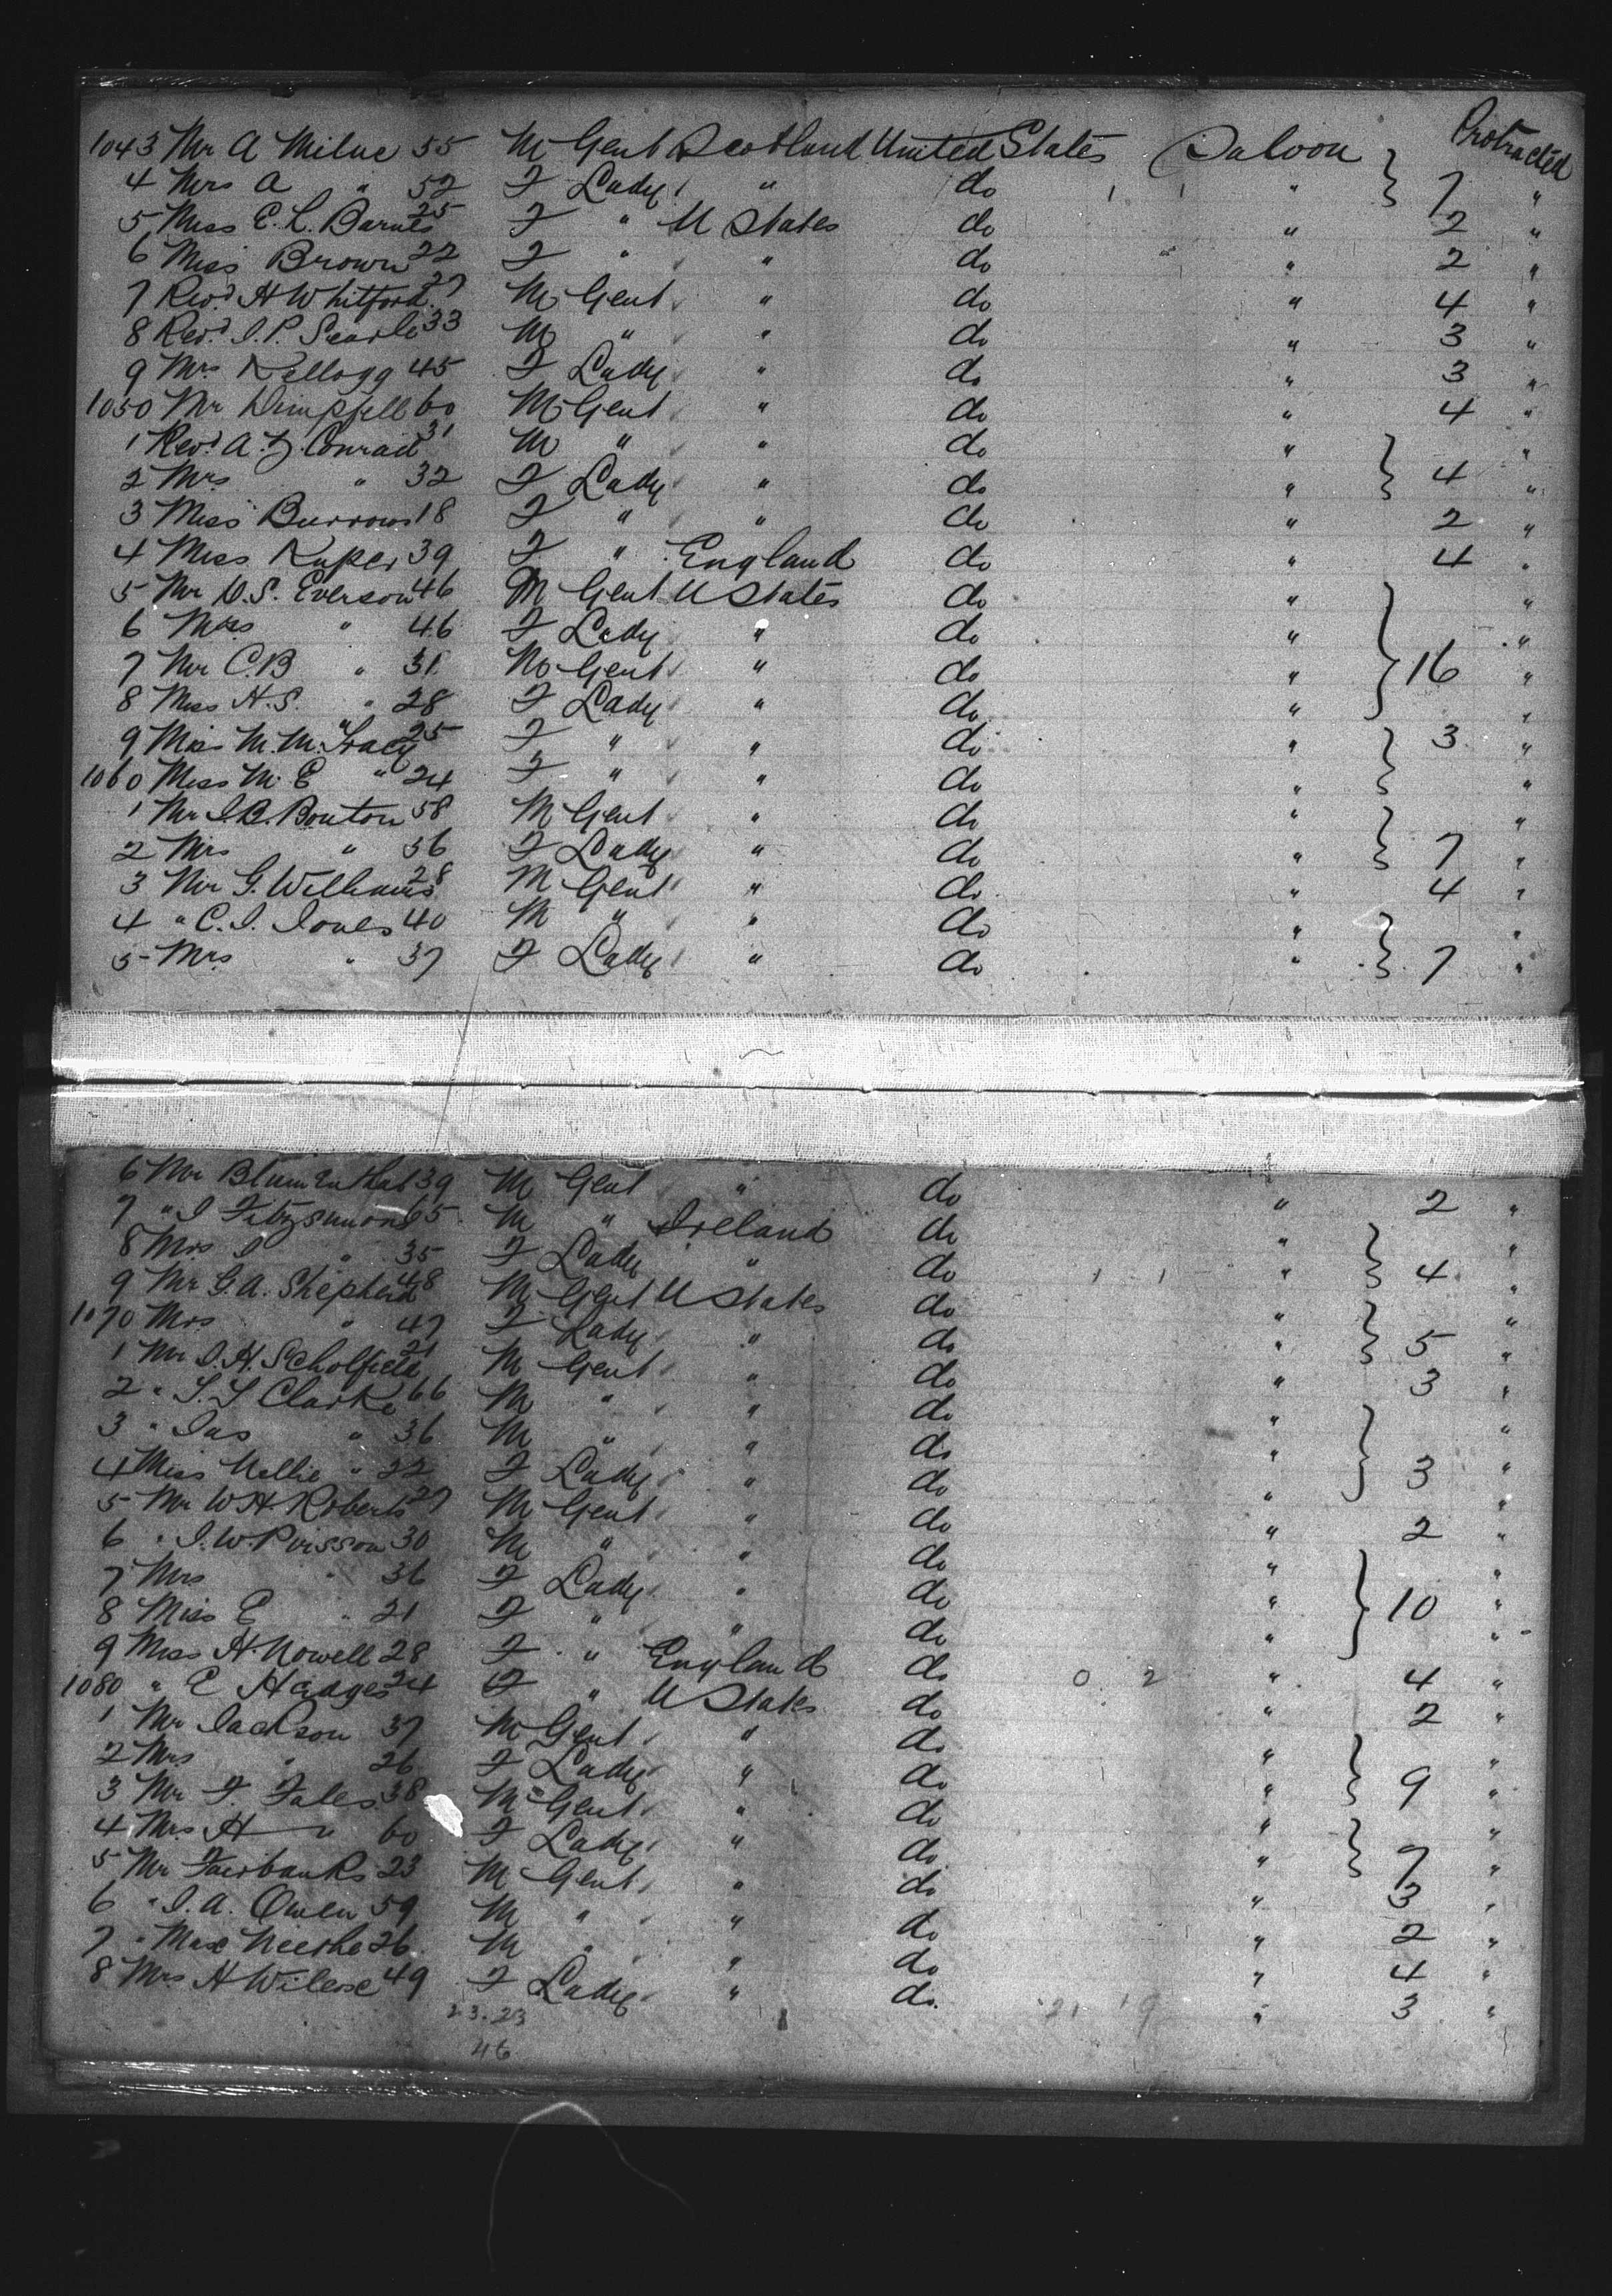 Protracted
1043 Mr A Milne 55 M Gent Scotland United States Saloon
4 Mrs A " 52 F Lady " do " 7 "
5 Miss E. L. Barnes 25 F " U States do " 2 "
6 Miss Brown 22 F " " do " 2 "
7 Revd H Whitford 27 M Gent " do " 4 "
8 Revd. J. P. Searle 33 M " " do " 3 "
9 Mrs Kellogg 45 F Lady " do " 3 "
1050 Mr Dimpfell 60 M Gent " do " 4 "
1 Revd A. Z. Conrad 31 M " " do " "
2 Mrs " 32 F Lady " do " 4 "
3 Miss Burrows 18 F " " do " 2 "
4 Miss Kuper 39 F " England do " 4 "
5 Mr D. S. Everson 46 M Gent U States do " "
6 Mrs " 46 F Lady " do " "
7 Mr C. B " 31 M Gent " do " 16 "
8 Miss H. S. " 28 F Lady " do " "
9 Miss M. M. Tracy 25 F " " do " 3 "
1060 Miss M. E " 24 F " " do " "
1 Mr J. B. Bouton 58 M Gent " do " "
2 Mrs " 56 F Lady " do " 7 "
3 Mr G. Williams 28 M Gent " do " 4 "
4 " C. J. Jones 40 M " " do " "
5 Mrs " 37 F Lady " do " 7 "
6 Mr Blumenthal 39 M Gent " do " 2 "
7 " J Fitzsimons 65 M " Ireland do " "
8 Mrs J " 35 F Lady " do 1 1 " 4 "
9 Mr G. A. Shepherd 48 M Gent U States do " "
1070 Mrs " 47 F Lady " do " 5 "
1 Mr J. H. Scholfield 21 M Gent " do " 3 "
2 " S. S Clarke 66 M " " do " "
3 " Jas " 36 M " " do " "
4 Miss Nellie " 22 F Lady " do " 3 "
5 Mr W H Roberts 27 M Gent " do " 2 "
6 " J. W. Poisson 30 M " " do " "
7 Mrs " 36 F Lady " do " 10 "
8 Miss E " 21 F " " do " "
9 Miss H. Nowell 28 F " England do 0 2 " 4 "
1080 " E Hadges 24 F " U States do " 2 "
1 Mr Jackson 37 M Gent " do " "
2 Mrs " 26 F Lady " do " 9 "
3 Mr F. Fales 38 M Gent " do " "
4 Mrs H " 60 F Lady " do " 7 "
5 Mr Fairbanks 23 M Gent " do " 3 "
6 " J. A. Owen 59 M " " do " 2 "
7 " Max 26 M " " do " 4 "
8 Mrs H 49 F Lady " do. 21 19 " 3 "
23.23
46